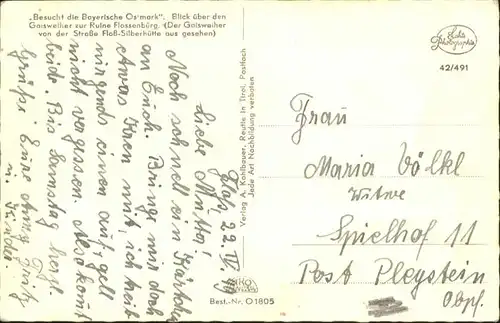 „Besucht die Bayerische Ostmark". Blick über den
Gaisweiher zur Ruine Flossenbürg. (Der Gaisweiher
von der Straße Floß-Silberhütte aus gesehen)
Floß, 22. IV.
Liebe Mutta!
Noch schnell ein Kärtchen
an Euch. Bringe mir doch
etwas Garn mit, ich treib
nirgends einen auf, gell
nicht vergessen. Also kommt
beide. Bis Samstag herzl.
Grüße Eure Anny Fritz
u. Kinder.
Verlag A. Kahlbauer, Reutte in Tirol, Postfach
Jede Art Nachbildung verboten
Best.-Nr. O 1805
Echte
Photographie
42/491
Frau
Maria Völkl
Witwe
Spielhof 11
Post Pleystein
Obpf.